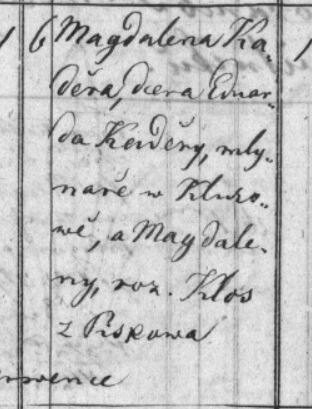 6 Magdalena Ka-
děra, dcera Eduar-
da Kaděry, mly-
naře w
wě, a Magdale-
ny, roz. Klos
z Piskowa